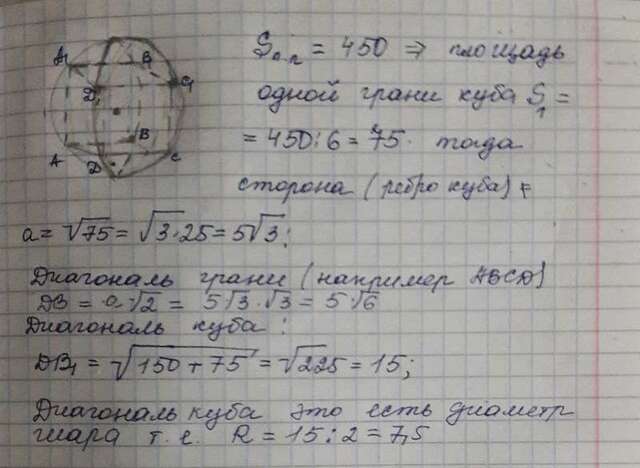 A₁ B₁
D₁ C₁
B
A D C
Sп.п = 450 ⇒ площадь
одной грани куба S₁ =
= 450:6 = 75. тогда
сторона (ребро куба) =
a = √75 = √3·25 = 5√3;
Диагональ грани (например ABCD)
DB = a·√2 = 5√3·√3 = 5√6
Диагональ куба:
DB₁ = √150+75 = √225 = 15;
Диагональ куба это есть диаметр
шара т.е. R = 15:2 = 7,5